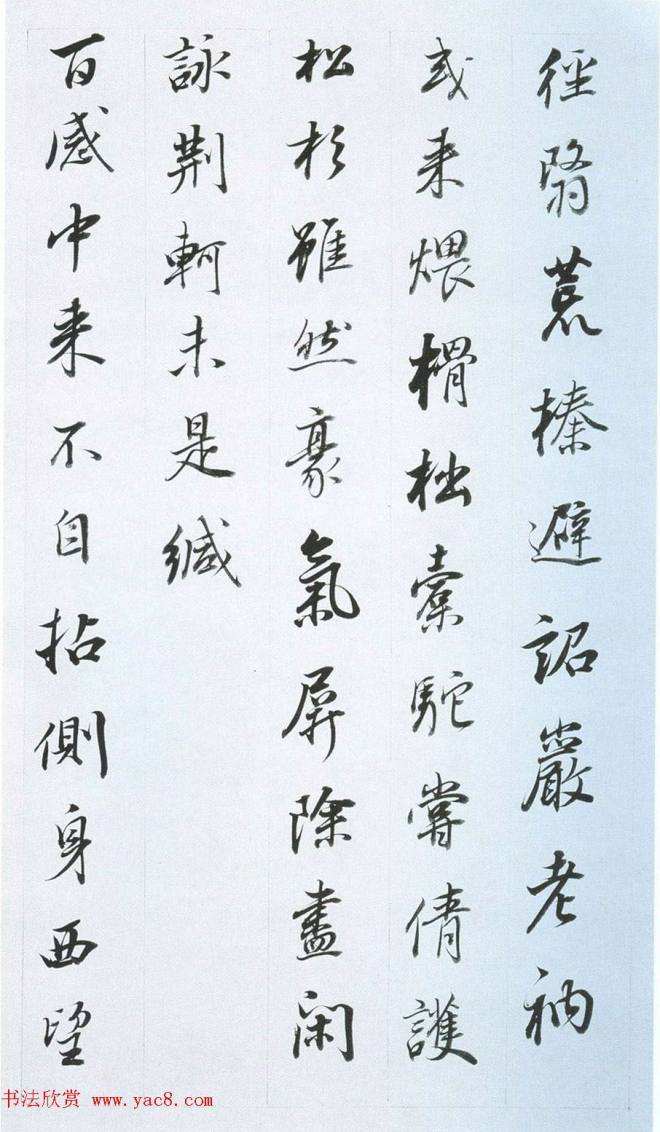 徑翳荒榛避詔巖老衲
或来煨榾柮橐駝嘗倩護
松杉雖然豪氣屏除盡閑
詠荆軻未是緘
百感中来不自拈側身西望
书法欣赏 www.yac8.com